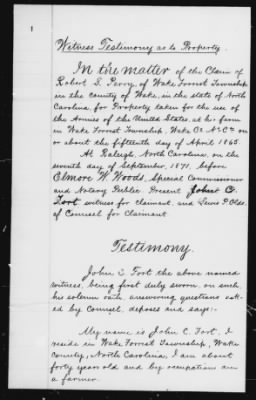 1
Witness Testimony as to Property.
In the matter of the Claim of
Robert S. Perry, of Wake Forrest Township
in the County of Wake, in the state of North
Carolina, for Property taken for the use of
the Armies of the United States, at his farm
in Wake Forrest Township, Wake Co. N.C. on
or about the fifteenth day of April 1865.
At Raleigh, North Carolina, on the
seventh day of September, 1871, before
Elmore W. Woods, Special Commissioner
and Notary Public. Present John C.
Fort witness for claimant, and Lewis P. Olds
of Counsel for Claimant.
Testimony.
John C. Fort the above named
witness, being first duly sworn, on such,
his solemn oath answering questions ask-
ed by Counsel, deposes and says:-
My name is John C. Fort. I
reside in Wake Forrest Township, Wake
County, North Carolina. I am about
forty year old and by occupation am
a farmer.